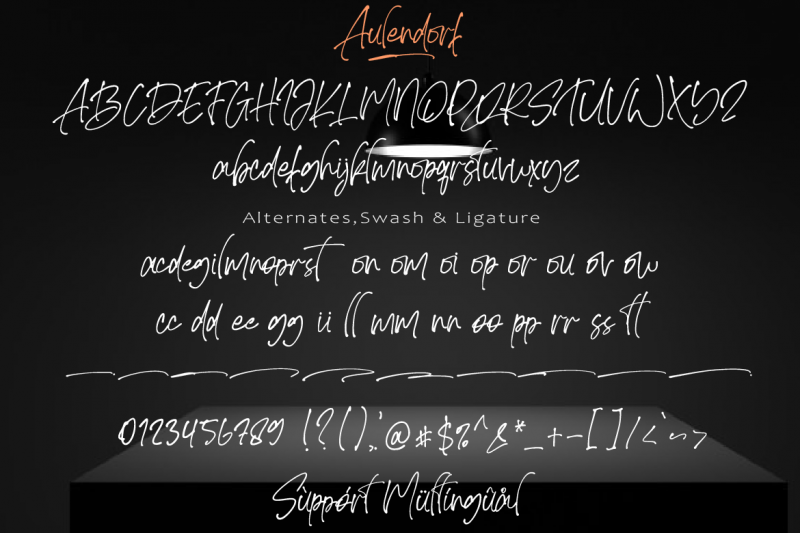 Aulendorf
ABCDEFGHIJKLMNOPQRSTUVWXYZ
abcdefghijklmnopqrstuvwxyz
Alternates,Swash & Ligature
acdegilmnoprst on om oi op or ou ov ow
cc dd ee gg ii ll mm nn oo pp rr ss tt
0123456789 !?(),.'@#$%^&*_+-[]/<`~>
Sùppórt Mültíngûål